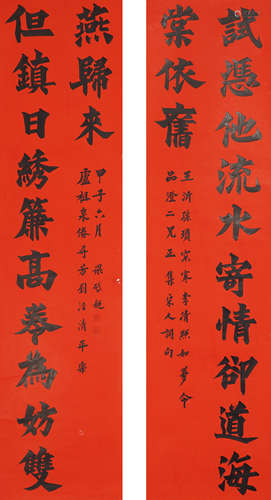 試憑他流水寄情卻道海
棠依舊
王沂孫瑣窗寒李清照如夢令
品澄二兄正集宋人詞句
但鎮日綉簾高卷為妨雙
燕歸來
盧祖皋倦尋芳劉涇清平樂
甲子六月 梁啟超